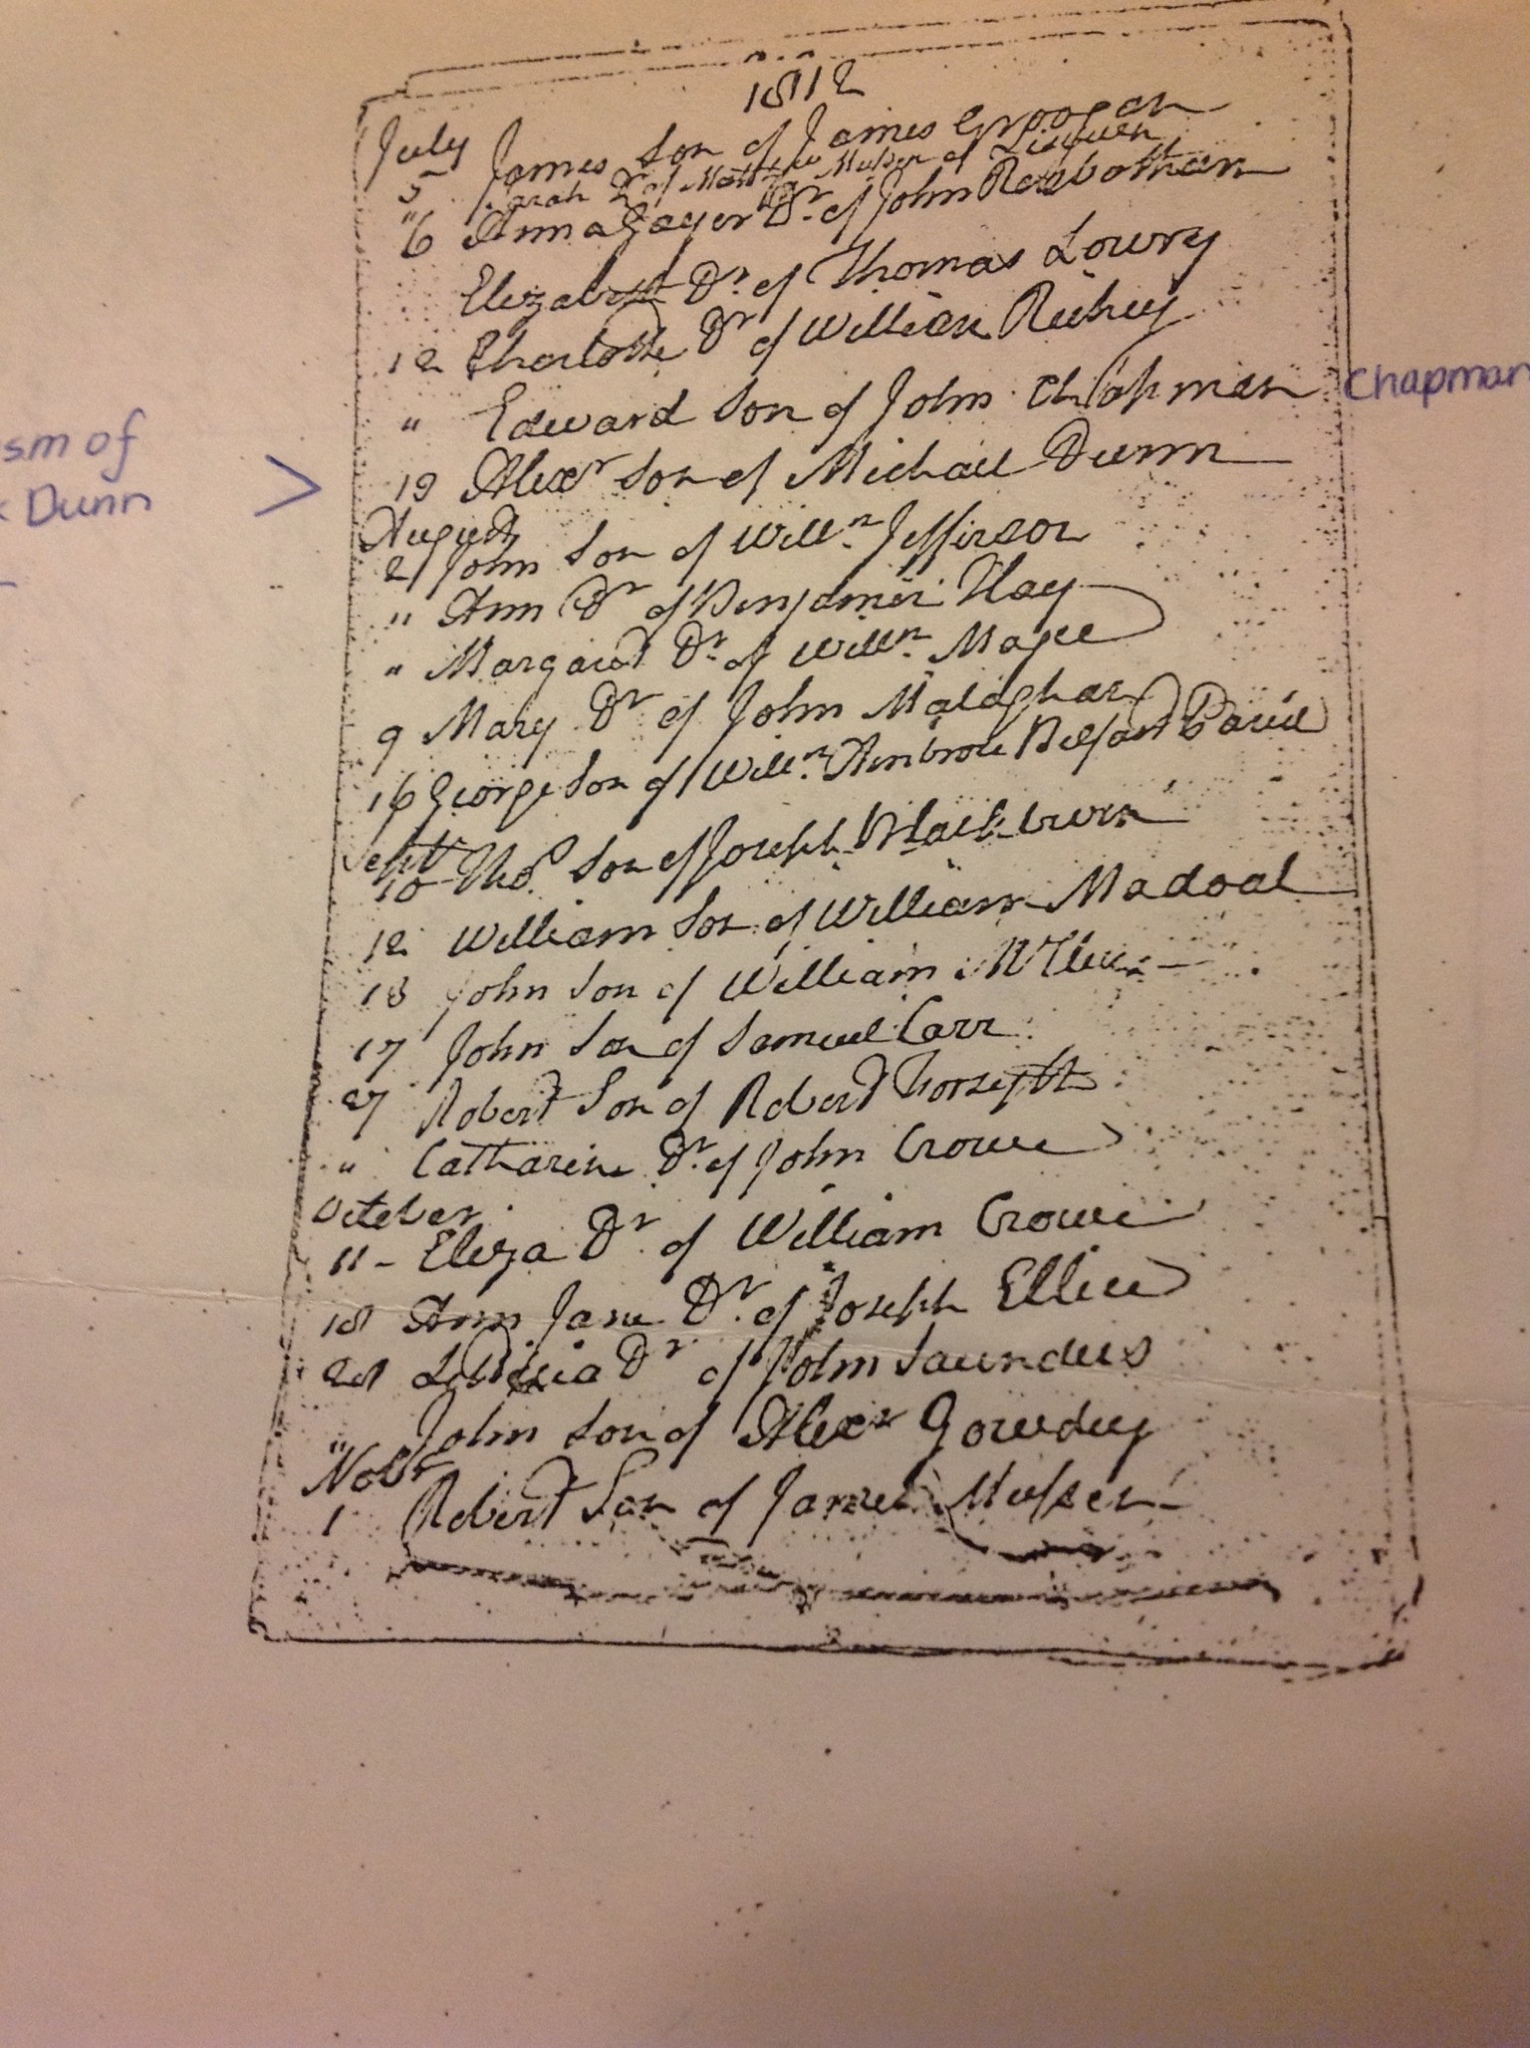 1812
July
5 James Son of James Groogan
" Sarah Dr of Matthew Musser of Lisquen
6 Anna Gayer Dr. of John Rosbotham
Elizabeth Dr. of Thomas Lowry
12 Charlotte Dr of William Richey
" Edward Son of John Chapman Chapman
19 Alexr Son of Michael Dunn
sm of
Dunn >
August
2 John Son of Willm Jefferson
" Ann Dr of Benjamin Hay
" Margaret Dr. of Willm Magee
9 Mary Dr of John Malaghan
16 George Son of Willm Ambrose Belfast
Septr
10 Thos. Son of Joseph Blackburn
12 William Son of William Madoal
13 John Son of William
17 John Son of Samuel Carr
27 Robert Son of Robert Forsyth
" Catharine Dr. of John Crowe
October
11 - Eliza Dr of William Crowe
18 Ann Jane Dr. of Joseph Ellice
Dr of John Saunders
" John Son of Alexr Gowdey
Nobr
1 Robert Son of James Musser